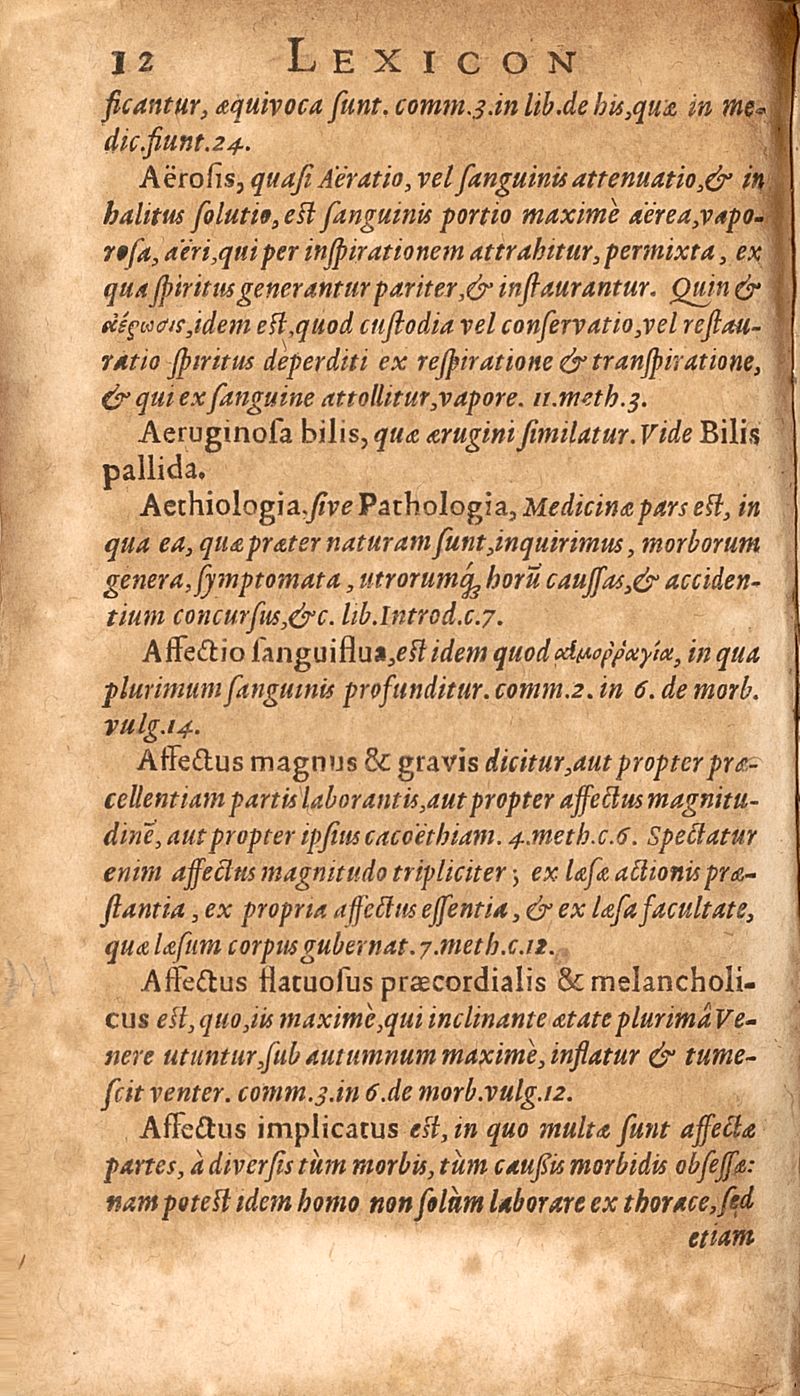 12 LEXICON
ficantur, æquivoca ſunt. comm.3.in lib.de his,quæ in me-
dic.fiunt.24.
Aëroſis, quaſi Aëratio, vel ſanguinis attenuatio,& in
halitus ſolutio, eſt ſanguinis portio maximè aërea,vapo-
roſa, aëri,qui per inſpirationem attrahitur, permixta, ex
qua ſpiritus generantur pariter,& inſtaurantur. Quin &
ἀέρωσις,idem eſt,quod cuſtodia vel conſervatio,vel reſtau-
ratio ſpiritus deperditi ex reſpiratione & tranſpiratione,
& qui ex ſanguine attollitur,vapore. 11.meth.3.
Aeruginoſa bilis, quæ ærugini ſimilatur. Vide Bilis
pallida.
Aethiologia, ſive Pathologia, Medicinæ pars eſt, in
qua ea, quæ præter naturam ſunt,inquirimus, morborum
genera, ſymptomata, utrorumq́ꝫ horũ cauſſas,& acciden-
tium concurſus,&c. lib.Introd.c.7.
Affectio ſanguiflua,eſt idem quod αἱμοῤῥαγία, in qua
plurimum ſanguinis profunditur. comm.2. in 6. de morb.
vulg.14.
Affectus magnus & gravis dicitur,aut propter præ-
cellentiam partis laborantis,aut propter affectus magnitu-
dinẽ, aut propter ipſius cacoëthiam. 4.meth.c.6. Spectatur
enim affectus magnitudo tripliciter; ex læſæ actionis præ-
ſtantia, ex propria affectus eſſentia, & ex læſa facultate,
quæ læſum corpus gubernat. 7.meth.c.12.
Affectus flatuoſus præcordialis & melancholi-
cus eſt, quo,iis maximè,qui inclinante ætate plurimâ Ve-
nere utuntur,ſub autumnum maximè, inflatur & tume-
ſcit venter. comm.3.in 6.de morb.vulg.12.
Affectus implicatus eſt, in quo multæ ſunt affectæ
partes, à diverſis tùm morbis, tùm cauſſis morbidis obſeſſæ:
nam poteſt idem homo non ſolùm laborare ex thorace, ſed
etiam